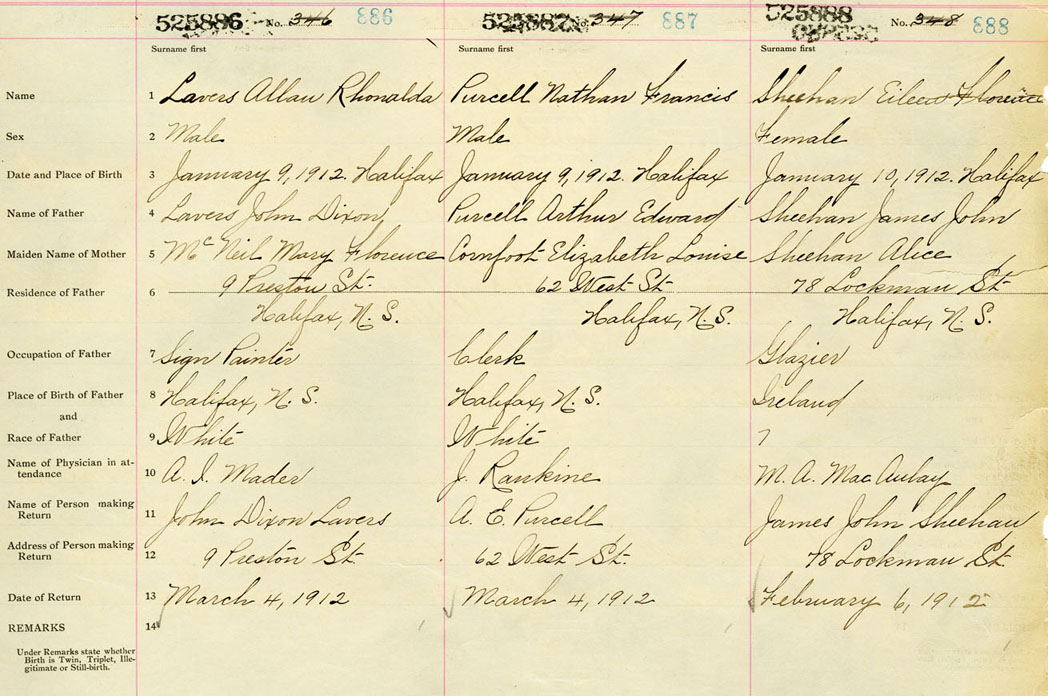 525886 No. 346 886 525887 No. 347 887 525888 No. 348 888
Surname first Surname first Surname first
Name 1 Lavers Allan Rhonalda Purcell Nathan Francis Sheehan Eileen Florence
Sex 2 Male Male Female
Date and Place of Birth 3 January 9, 1912. Halifax January 9, 1912. Halifax January 10, 1912. Halifax
Name of Father 4 Lavers John Dixon Purcell Arthur Edward Sheehan James John
Maiden Name of Mother 5 McNeil Mary Florence Cornfoot Elizabeth Louise Sheehan Alice
Residence of Father 6 9 Preston St. 62 West St. 78 Lockman St.
Halifax, N.S. Halifax, N.S. Halifax, N.S.
Occupation of Father 7 Sign Painter Clerk Glazier
Place of Birth of Father 8 Halifax, N.S. Halifax, N.S. Ireland
and
Race of Father 9 White White
Name of Physician in at-
tendance 10 A. I. Mader J. Rankine M. A. MacAulay
Name of Person making
Return 11 John Dixon Lavers A. E. Purcell James John Sheehan
Address of Person making
Return 12 9 Preston St. 62 West St. 78 Lockman St.
Date of Return 13 March 4, 1912 March 4, 1912 February 6, 1912
REMARKS 14
Under Remarks state whether
Birth is Twin, Triplet, Ille-
gitimate or Still-birth.